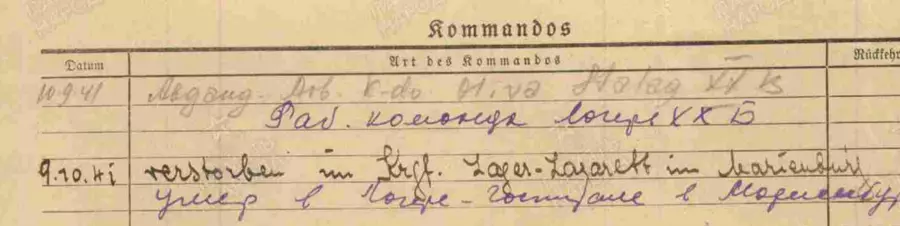 Kommandos
Datum Art des Kommandos Rückkehr
10.9.41 Abgang. Arb. K-do Oliva Stalag XX B
Раб. команда Лагерь XX Б
9.10.41 verstorben im Krgf. Lager-Lazarett in Marienburg
Умер в Лагере-Госпитале в Мариенбур